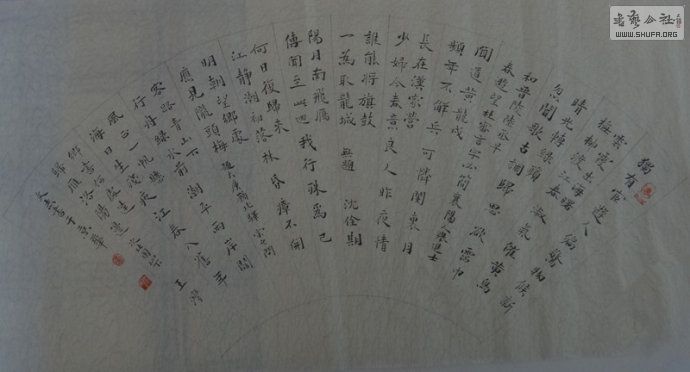 獨有宦遊人偏驚物候新
雲霞出海曙
梅柳渡江春淑氣催黃鳥
晴光轉綠蘋
勿聞歌古調歸思欲霑巾
和晉陵陸丞早
春遊望杜審言字必簡襄陽人進士
聞道黃龍戍
頻年不解兵可憐閨裏月
長在漢家營
少婦今春意良人昨夜情
誰能將旗鼓
一為取龍城無題沈佺期
陽月南飛雁
傳聞至此迴我行殊焉已
何日復歸來
江靜潮初落林昏瘴不開
明朝望鄉處
應見隴頭梅題大庾嶺北驛宋之問
客路青山下
行舟綠水前潮平兩岸闊
風正一帆懸
海日生殘夜江春入舊年王灣
鄉書何處達
歸雁洛陽邊
WWW.SHUFA.ORG